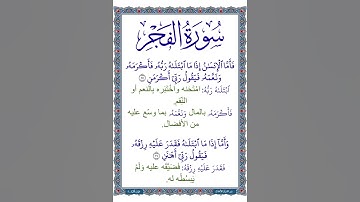 سُورَةُ الفَجْرِ
فَأَمَّا ٱلْإِنسَٰنُ إِذَا مَا ٱبْتَلَىٰهُ رَبُّهُۥ فَأَكْرَمَهُۥ
وَنَعَّمَهُۥ فَيَقُولُ رَبِّىٓ أَكْرَمَنِ ۝
ٱبْتَلَىٰهُ رَبُّهُ: امْتَحَنَه واخْتَبَرَه بالنِّعم أو
النِّقم.
فَأَكْرَمَهُۥ بالمال وَنَعَّمَهُۥ بما وسّع عليه
من الأفضال.
وَأَمَّآ إِذَا مَا ٱبْتَلَىٰهُ فَقَدَرَ عَلَيْهِ رِزْقَهُۥ
فَيَقُولُ رَبِّىٓ أَهَٰنَنِ ۝
فَقَدَرَ عَلَيْهِ: فضَيَّقه عليه وَلَمْ
يَبْسُطْه له.